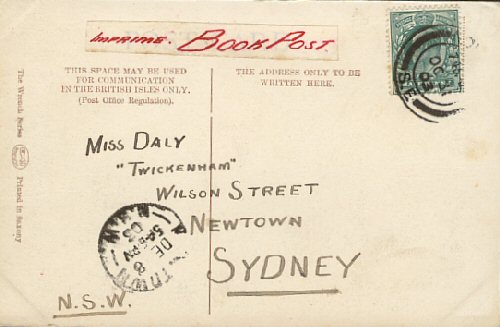 IMPRIMÉ. BOOK POST.
THIS SPACE MAY BE USED
FOR COMMUNICATION
IN THE BRITISH ISLES ONLY.
(Post Office Regulation).
THE ADDRESS ONLY TO BE
WRITTEN HERE.
The Wrench Series
Printed in Saxony
MISS DALY
"TWICKENHAM"
WILSON STREET
NEWTOWN
SYDNEY
N.S.W.
DE
8
03
S.E
03